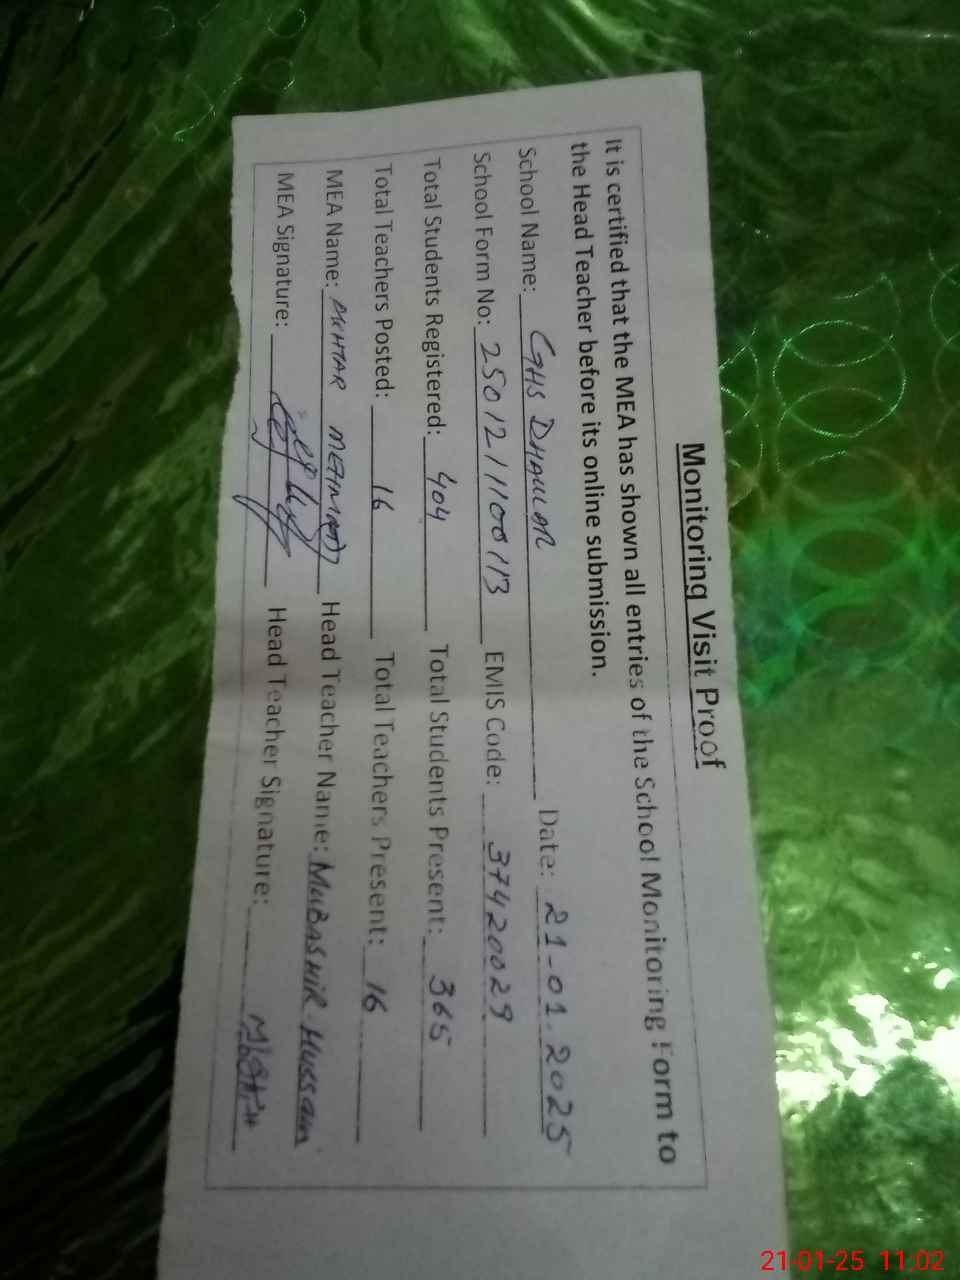 Monitoring Visit Proof
It is certified that the MEA has shown all entries of the School Monitoring Form to
the Head Teacher before its online submission.
School Name: GHS DHAULAR Date: 21-01.2025
School Form No: 25012111100113 EMIS Code: 37420029
Total Students Registered: 404 Total Students Present: 365
Total Teachers Posted: 16 Total Teachers Present: 16
MEA Name: MEHMOOD Head Teacher Name: MUBASHIR HUSSAIN
MEA Signature: Head Teacher Signature:
21-01-25 11:02